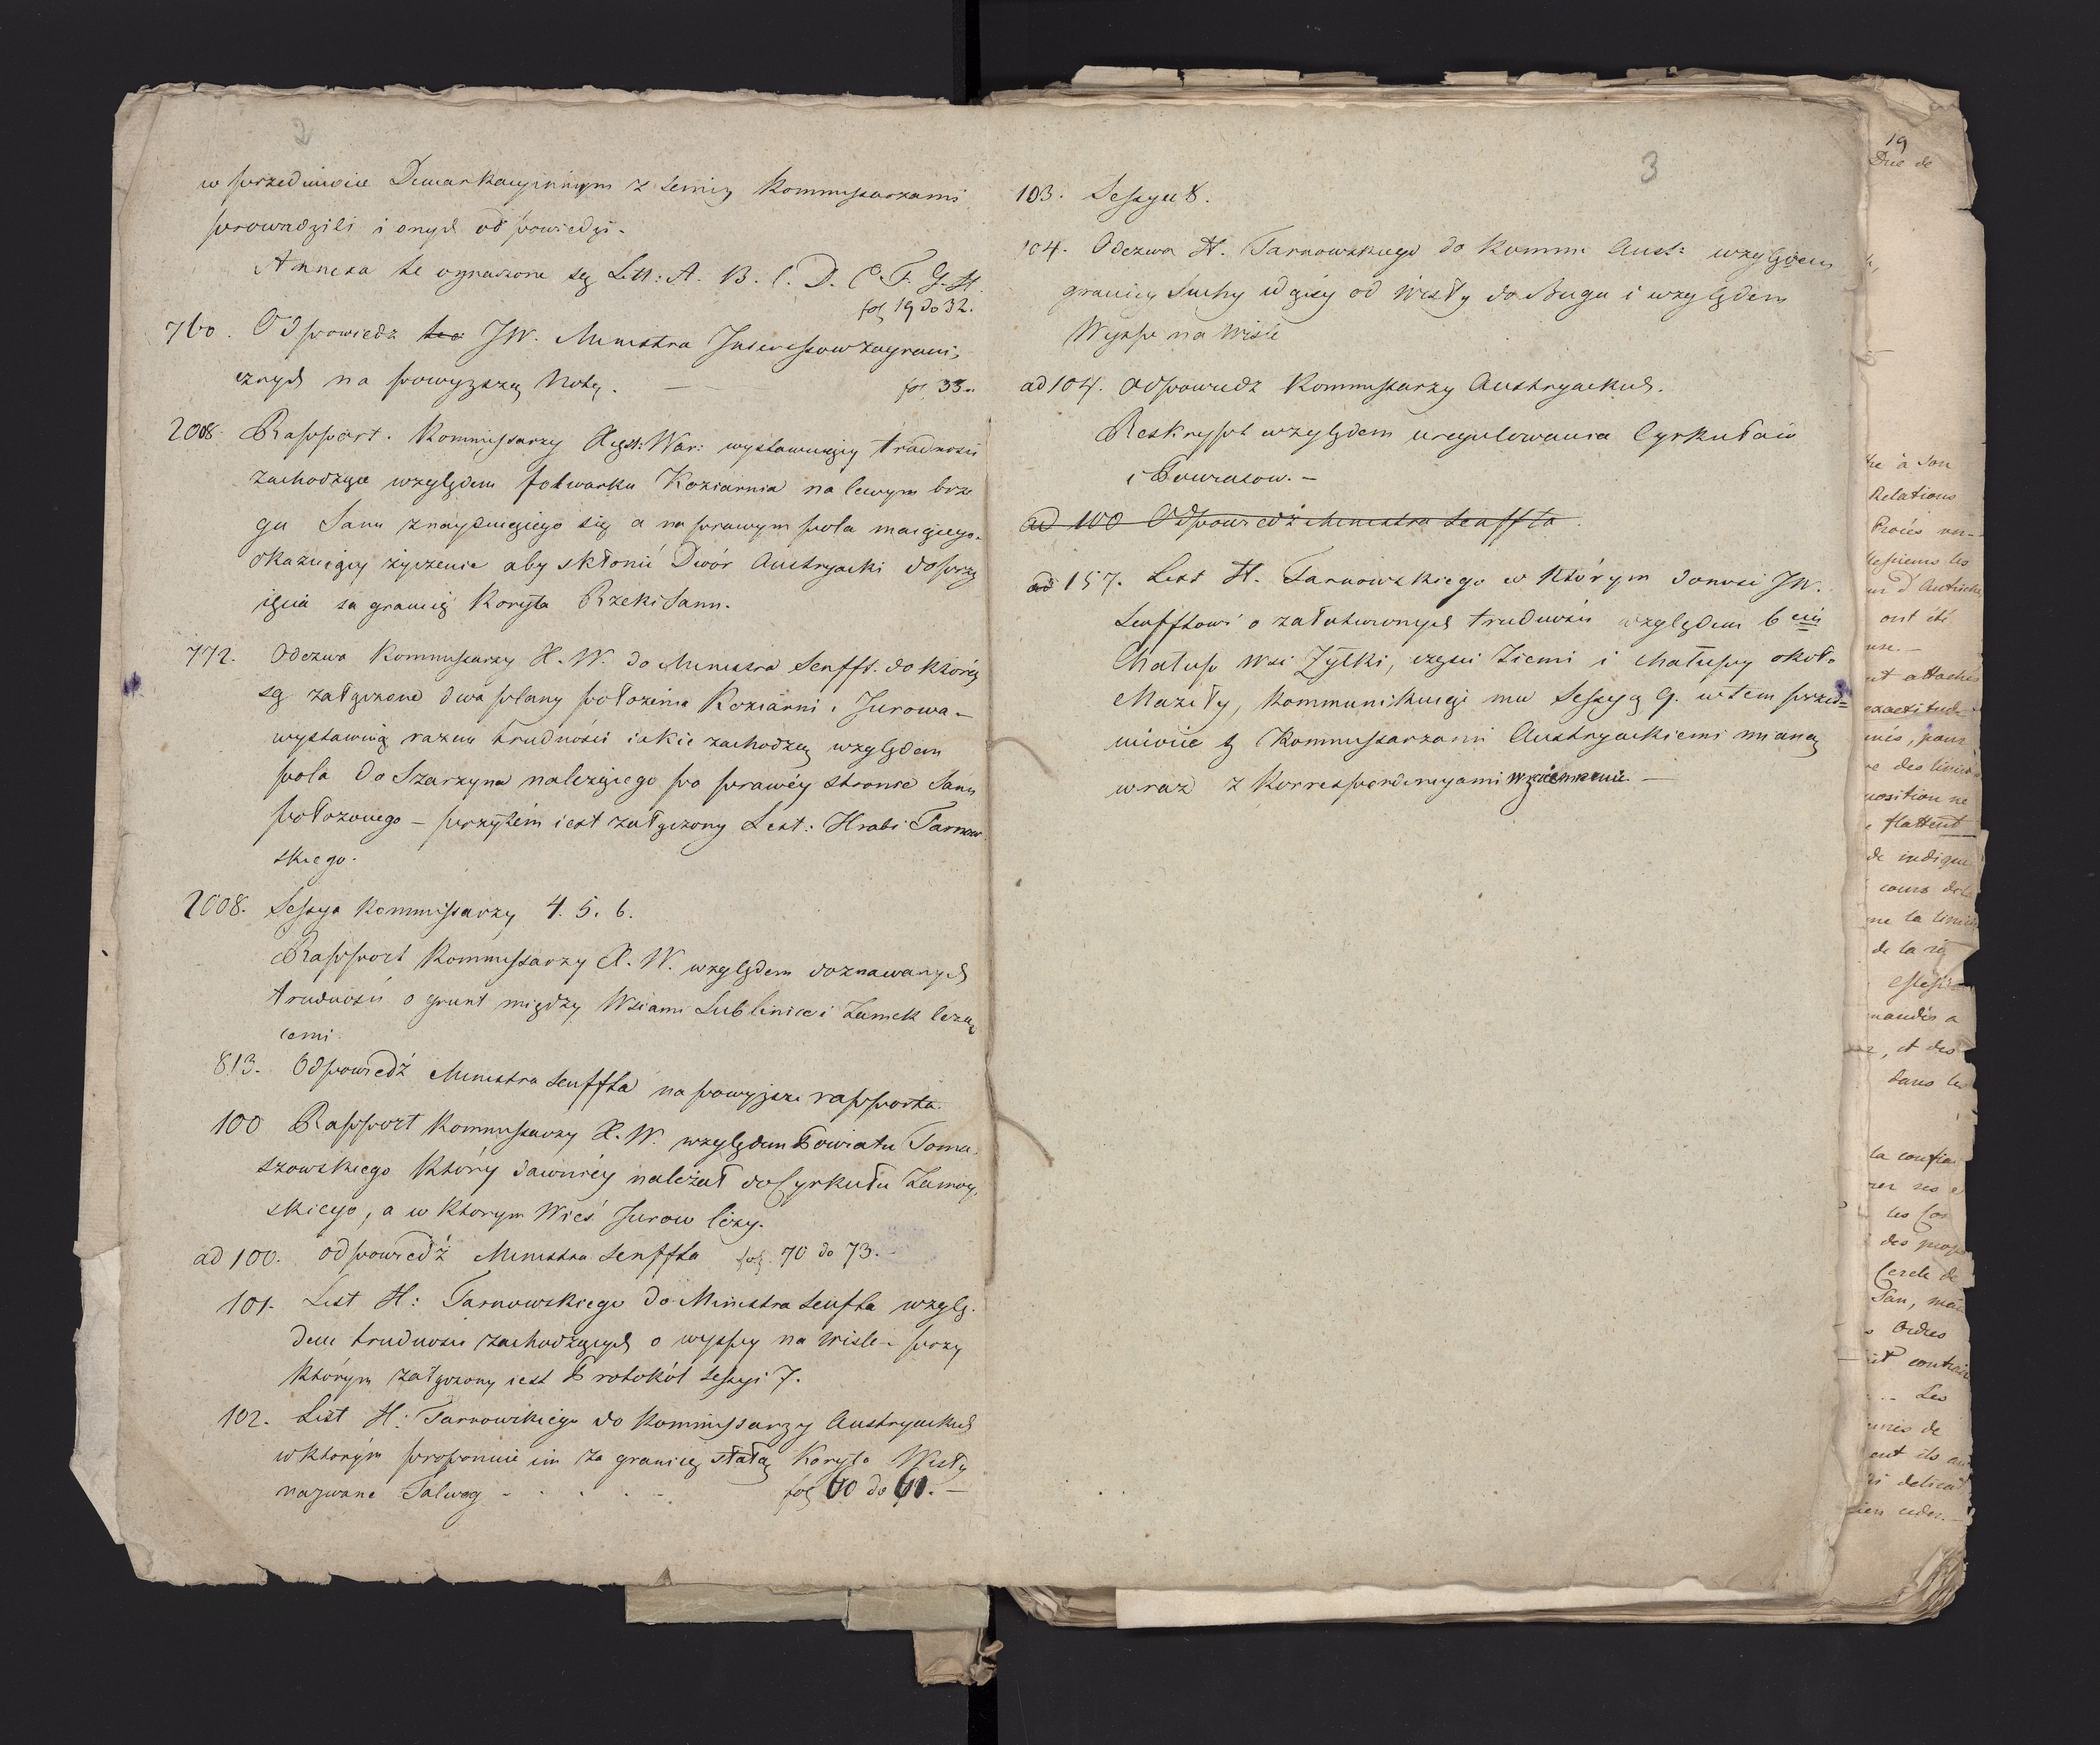 2
w przedmiocie Demarkacyinnym z temiż Kommissarzami
prowadzili i onych odpowiedzi.
Annexa te oznaczone są Litt: A. B. C. D. E. F. G. H.
fol 19 do 32.
760. Odpowiedz JW. Ministra Interessow zagrani,
cznych na powyzszą Notę. — fol 33.
2008. Rapport. Kommissarzy Xięst: War: wystawuiący trudnosci
zachodzące względem folwarku Koziarnia na lewym brze
gu Sanu znayduiącego się a na prawym pola maiącego.
okazuiący życzenie aby skłonić Dwór Austryacki do przy
ięcia za granicę Koryta Rzeki Sanu.
772. Odezwa Kommissarzy X. W. do Ministra Senfft. do którey
są załączone dwa plany położenia Koziarni i Jurowa —
wystawiają razem trudności iakie zachodzą względem
pola do Szarzyna należącego po prawéy stronie Sanu
położonego — przytém iest załączony List: Hrabi Tarnow
skiego.
2008. Sessya Kommissarzy 4. 5. 6.
Rapport Kommissarzy X. W. względem doznawanych
trudności o grunt między Wsiami Lublinice i Zamek leżą
cemi.
813. Odpowiedź Ministra Senffta na powyższe rapporta.
100 Rapport Kommissarzy X. W. względem Powiatu Toma
szowskiego Który dawniéy należał do Cyrkułu Zamoy,
skiego, a w Ktorym Wieś Jurow leży.
ad 100. Odpowiedź Ministra Senffta fol. 70 do 73.
101. List H: Tarnowskiego do Ministra Senfta wzglę.
dem trudnosci zachodzących o wyspy na Wisle — przy
którym załączony iest Protokół Sessyi 7.
102. List H: Tarnowskiego do Kommissarzy Austryackich
w którym proponuie im za granicę stałą Koryto Wisły
nazwane Talweg - - - - - fol 60 do 61. —
3
103. Sessya 8.
104. Odezwa H. Tarnowskiego do Komm: Aust: względem
granicy Suchy idącey od Wisły do Bugu i względem
Wysp na Wisle
ad 104. Odpowiedz Kommissarzy Austryackich.
Reskrypt względem uregulowania Cyrkułów
i Powiatow. —
ad 100 Odpowiedź Ministra Senffta.
ad 157. List H. Tarnowskiego w Którym donosi JW.
Senfftowi o załatwionych trudności względem 6 ciu
Chałup Wsi Zyłki, części Ziemi i Chałupy około
Maziły, Kommunikuiąc mu Sessyą 9. w tem przed=
miocie z Kommissarzami Austryackiemi mianą
wraz z Korrespondencyami
19
Due de
he à Son
Relations
Procès
Lessieurs les
ur d'Autriche
ont été
nt attachés
exactitude
des limites
position ne
flattent
de indique
cours de la
me la limite
de la
mandés a
, et des
dans les
la confia
des
Cercle de
San, mais
Ordres
it contraire
Les
unes de
ent ils